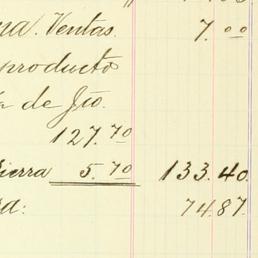 Ventas. 7.00
producto
de Jto.
127.70
ierra 5.70 133.40
74.87.